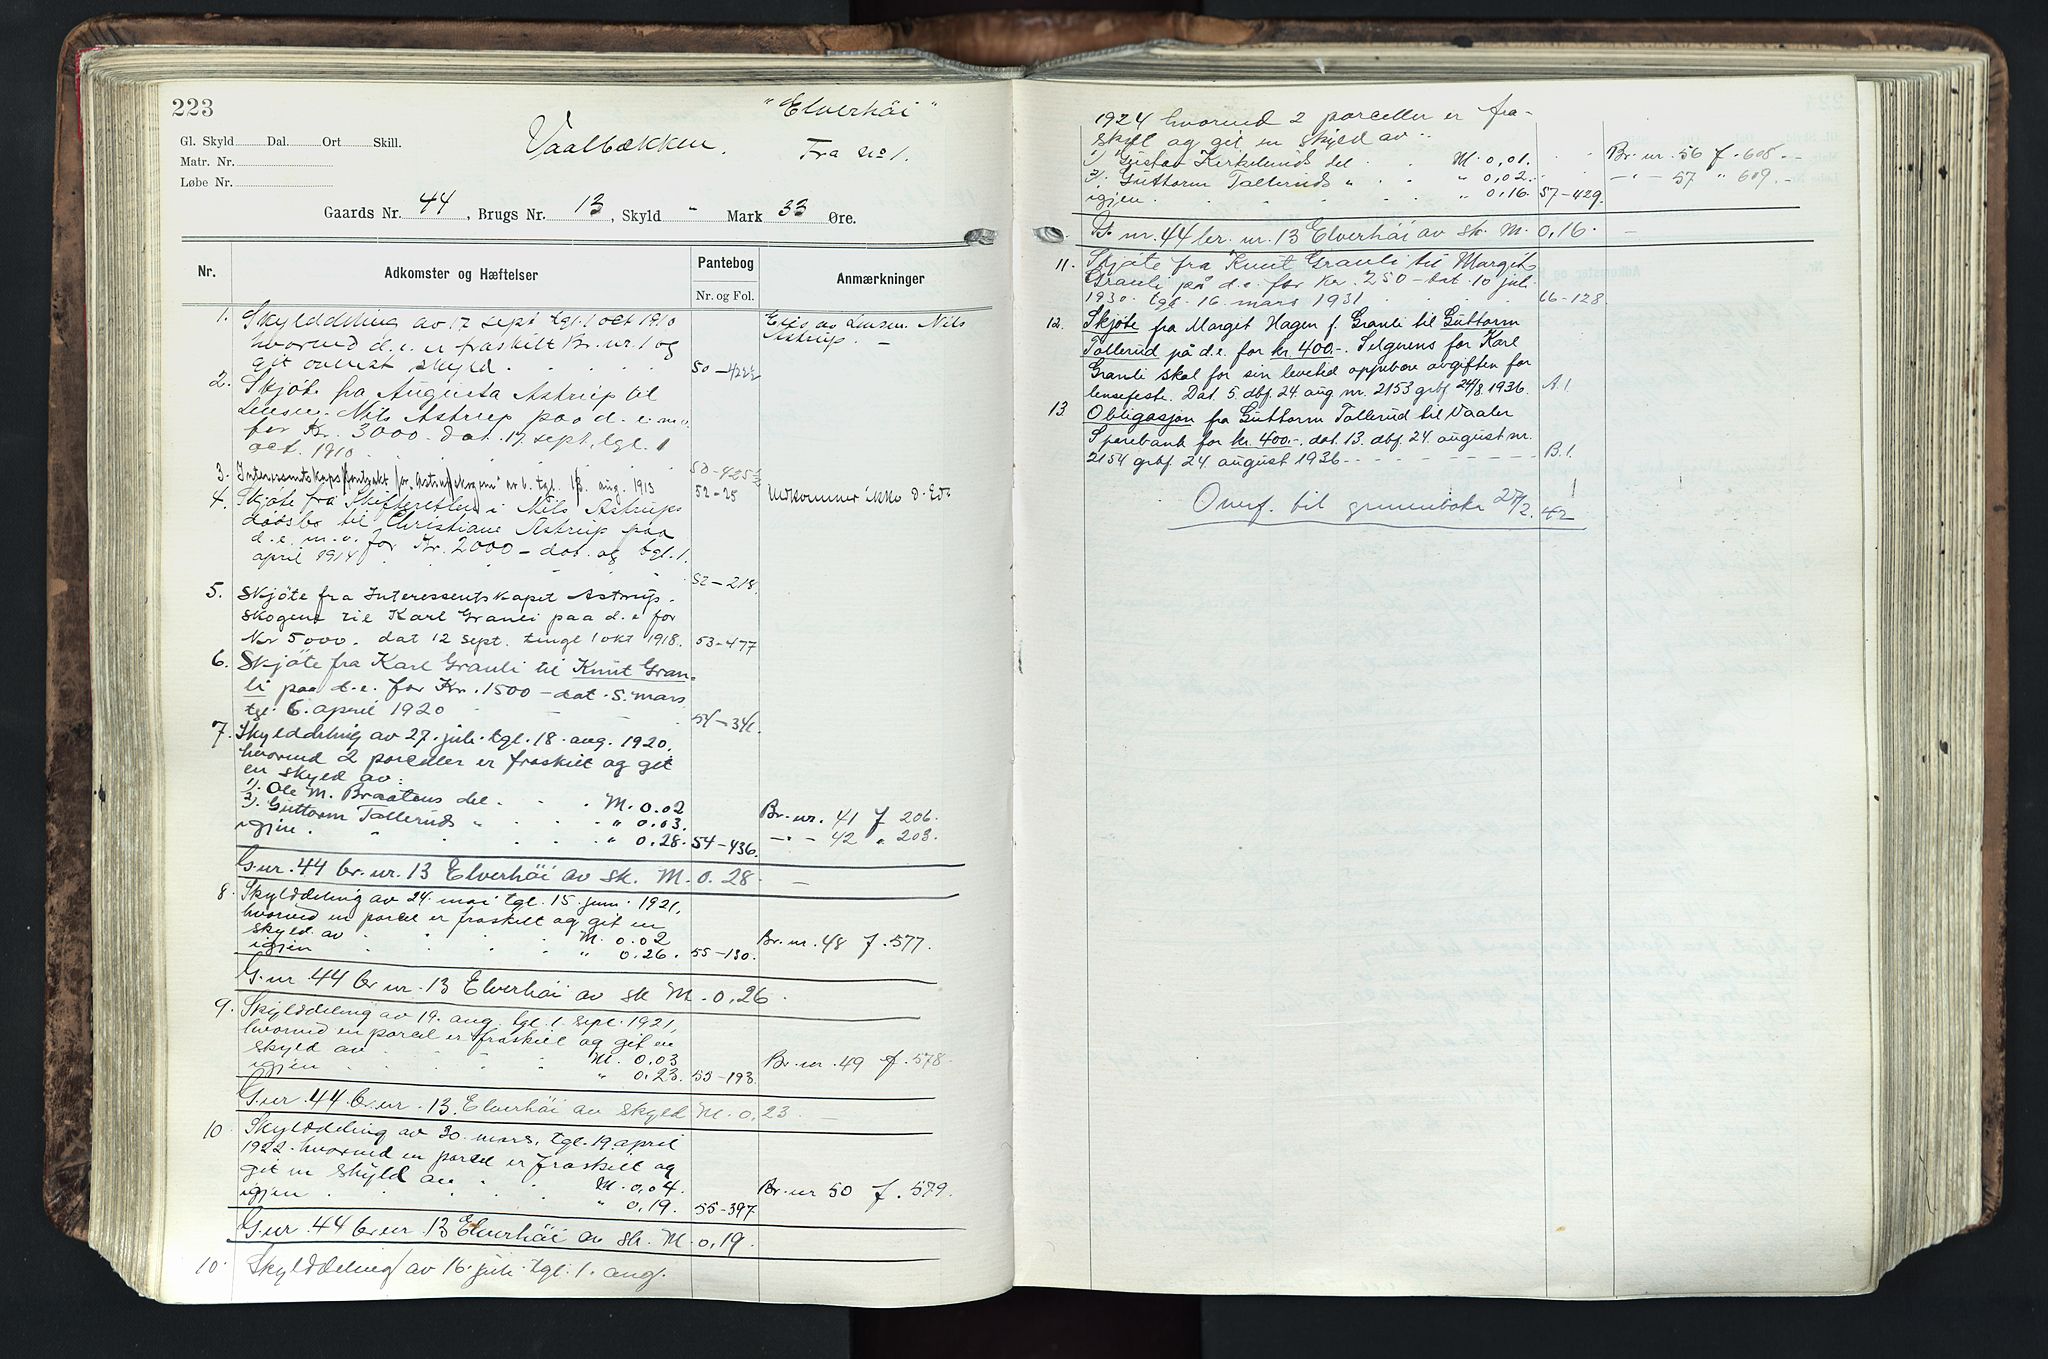 223
"Elverhöi"
Vaalbækken.
Fra No 1.
Gl. Skyld Dal. Ort Skill.
Matr. Nr.
Løbe Nr.
Gaards Nr. 44, Brugs Nr. 13, Skyld " Mark 33 Øre.
Nr. Adkomster og Hæftelser Pantebog Anmærkninger
Nr. og Fol.
1. Skylddeling av 17 sept tgl. 1 oct 1910
hvorved d. e. er fraskilt Br. nr. 1 og
git overst skyld. 50-422
Nils Astrup.
2. Skjöte fra Augusta Astrup til
Nils Astrup paa d. e. m. v.
for Kr. 3000. dat. 17 sept. tgl. 1
oct. 1910. 50-425
3. Interessentskapskontrakt for "Astrupskogene" av 6. tgl. 13. aug. 1913 52-25 Vedkommer ikke d. Ed.
4. Skjöte fra Skifteretten i Nils Astrups
dödsbo til Christiane Astrup paa
d. e. m. v. for Kr. 2000 - dat. og tgl. 1.
april 1914 52-218.
5. Skjöte fra Interessentskapet Astrup-
skogene til Karl Granli paa d. e for
Kr 5000. dat 12 sept. tingl 1 okt 1918. 53-477
6. Skjöte fra Karl Granli til Knut Gran-
li paa d. e. for Kr. 1500 - dat. 5. mars
tgl. 6. april 1920 54-341.
7. Skylddeling av 27. juli tgl. 18. aug. 1920,
hvorved 2 parceller er fraskilt og git
en skyld av:
1). Ole M. Braatens del M. 0.02 Br. nr. 41 f 206.
2). Guttorm Tolleruds " " 0.03. -"- 42 " 203.
igjen " 0.28. 54-436.
G. nr. 44 br. nr. 13 Elverhöi av sk. M. 0.28. -
8. Skylddeling av 24. mai tgl. 15. juni 1921,
hvorved en parcel er fraskilt og git en
skyld av M. 0.02 Br. nr. 48 f. 577.
igjen " 0.26. 55-130.
G. nr. 44 br nr. 13 Elverhöi av sk M. 0,26.
9. Skylddeling av 19. aug. tgl. 1. sept. 1921,
hvorved en parcel er fraskilt og git en
skyld av M. 0.03 Br. nr. 49 f. 578
igjen " 0.23. 55-193.
G. nr. 44. br. nr. 13. Elverhöi av skyld M. 0,23 -
10 Skylddeling av 30. mars, tgl. 19. april
1922. hvorved en parcel er fraskilt og
git en skyld av M. 0,04. Br. nr 50 f. 579.
igjen " 0.19. 55-397
G. nr. 44 br. nr. 13 Elverhöi av sk. M. 0,19.
10. Skylddeling av 16. juli tgl. 1. aug.
1924 hvorved 2 parceller er fra-
skilt og git en skyld av:
1) Gustav Kirkeluds del M. 0,01. Br. nr. 56 f. 608 -
2). Guttorm Tolleruds " " 0,02. -"- 57 " 609. -
igjen " 0,16. 57-429.
G. nr. 44 br. nr. 13 Elverhöi av sk. M. 0,16. -
11. Skjöte fra Knut Granli til Margit
Granli på d. e. for kr. 250 - dat. 10 juli
1930. tgl. 16. mars 1931. 66-128.
12. Skjøte fra Marget Hagen f. Granli til Guttorm
Tollerud på d.e. for kr. 400.-. Selgerens far Karl
Granli skal for sin levetid oppebære avgiften for
lensefeste. Dat. 5. dbf. 24. aug nr. 2153 grbf. 24/8 1936. A.1
13 Obligasjon fra Guttorm Tollerud til Vaaler
Sparebank for kr. 400.-. dat. 13. dbf. 24. august nr.
2154 grbf. 24. august 1936 - - - B.1.
Overf. til grunnboka 27/2. 42